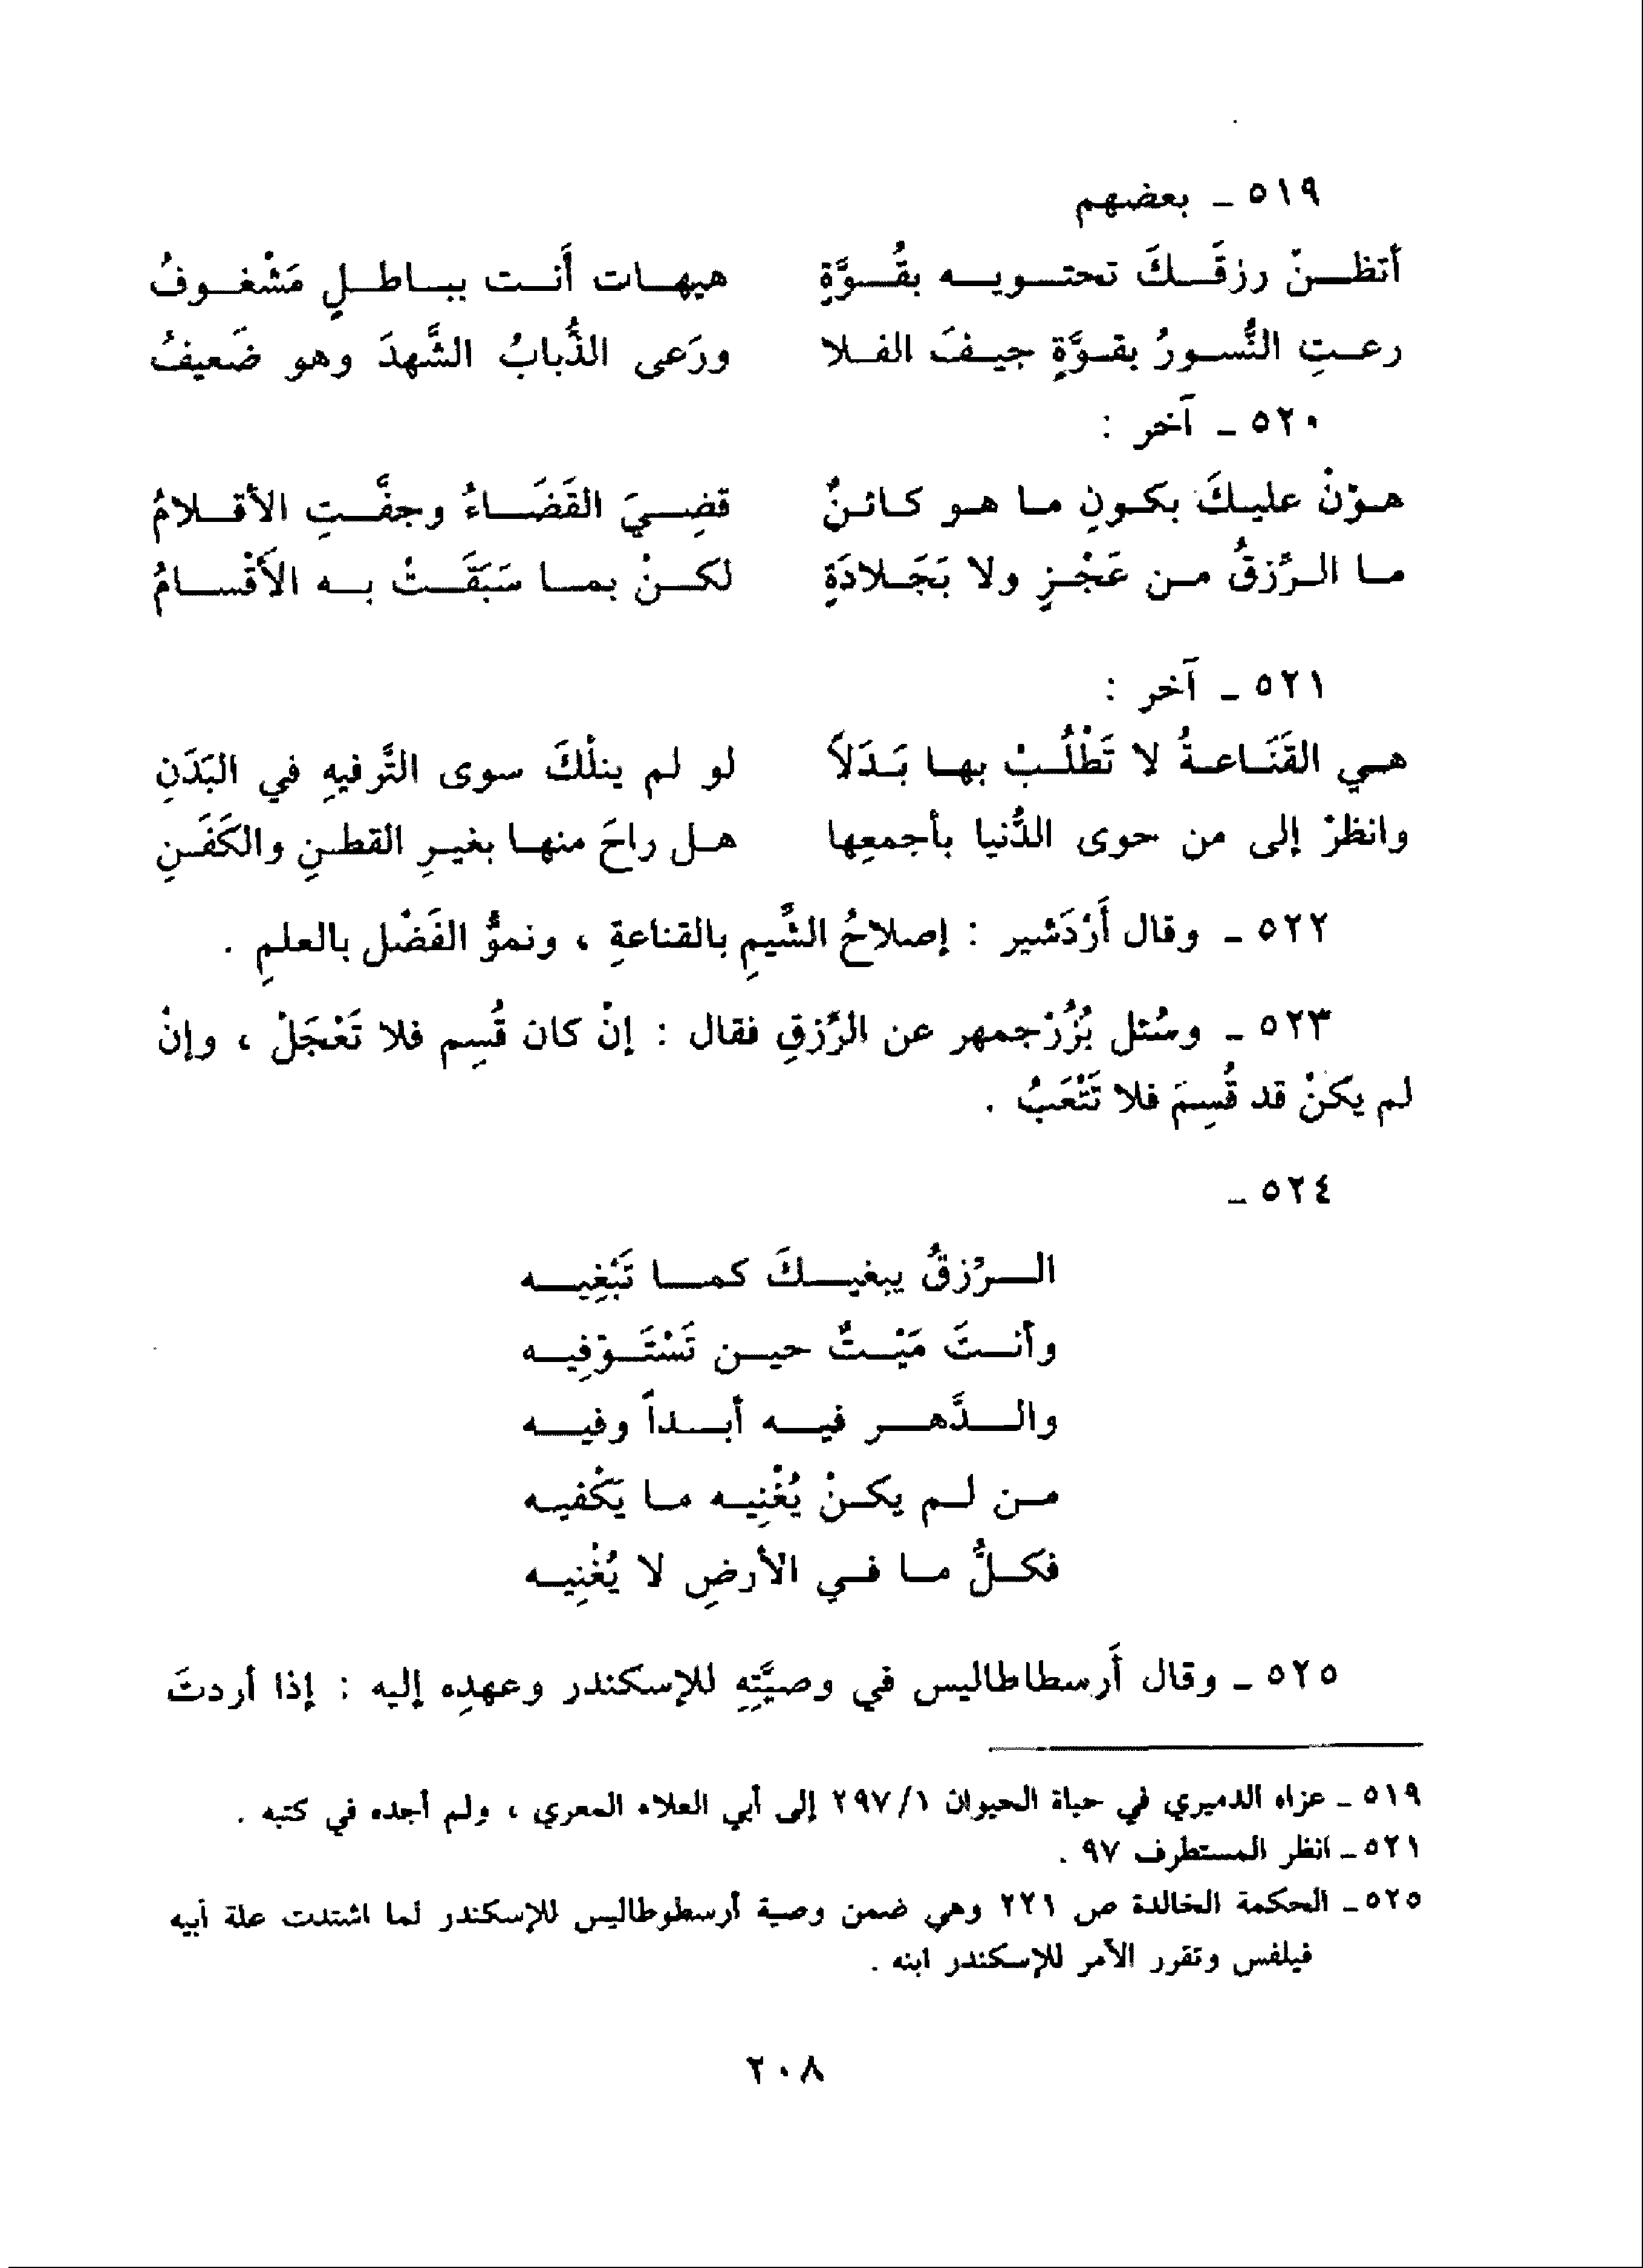 ٥١٩ ـ بعضهم
أتظنّ رزقَكَ تحتويه بقُوَّةٍ هيهات أَنت بباطلٍ مَشْغوفُ
رعتِ النُّسورُ بقوَّةٍ جيفَ الفلا ورَعى الذُّبابُ الشَّهدَ وهو ضَعيفُ
٥٢٠ ـ آخر :
هوّنْ عليكَ بكونِ ما هو كائنٌ قضِيَ القَضَاءُ وجفَّتِ الأقلامُ
ما الرِّزقُ من عَجْزٍ ولا بَجَلادَةٍ لكنْ بما سَبَقَتْ به الأَقْسامُ
٥٢١ ـ آخر :
هي القَنَاعةُ لا تَطْلُبْ بها بَدَلاً لو لم ينلْكَ سوى التَّرفيهِ في البَدَنِ
وانظرْ إلى من حوى الدُّنيا بأجمعِها هل راحَ منها بغيرِ القطنِ والكَفَنِ
٥٢٢ ـ وقال أَرْدَشير : إصلاحُ الشِّيمِ بالقناعةِ ، ونموُّ الفَضْل بالعلمِ .
٥٢٣ ـ وسُئل بُزُرْجمهر عن الرِّزقِ فقال : إنْ كان قُسِم فلا تَعْجَلْ ، وإنْ
لم يكنْ قد قُسِمَ فلا تَتْعَبُ .
٥٢٤ ـ
الرّزقُ يبغيكَ كما تَبْغِيه
وأنتَ مَيْتٌ حين تَسْتَوْفِيه
والدَّهر فيه أبداً وفيه
من لم يكنْ يُغْنِيه ما يَكْفيه
فكلُّ ما في الأرضِ لا يُغْنِيه
٥٢٥ ـ وقال أَرسطاطاليس في وصيَّتِهِ للإسكندر وعهدِه إليه : إذا أردتَ
٥١٩ ـ عزاه الدميري في حياة الحيوان ٢٩٧/١ إلى أبي العلاء المعري ، ولم أجده في كتبه .
٥٢١ ـ انظر المستطرف ٩٧ .
٥٢٥ ـ الحكمة الخالدة ص ٢٢١ وهي ضمن وصية أرسطوطاليس للإسكندر لما اشتدت علة أبيه
فيلفس وتقرر الأمر للإسكندر ابنه .
٢٠٨